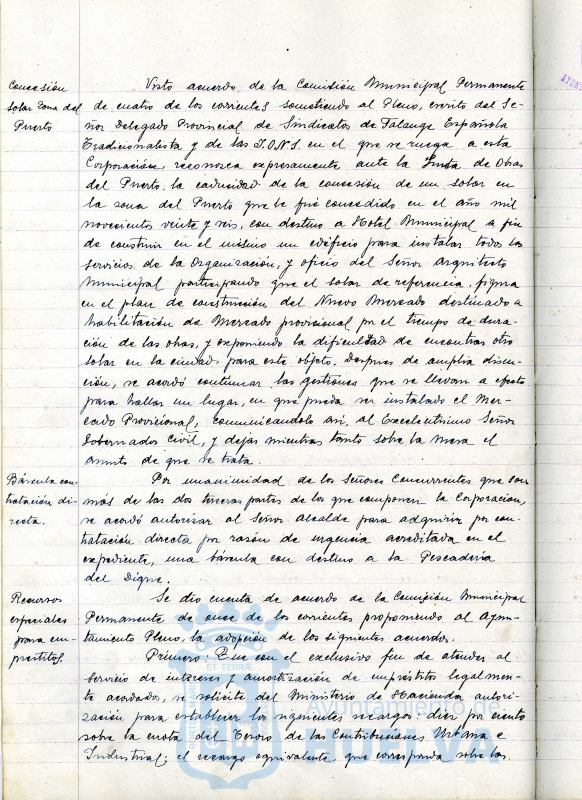 Concesión
solar zona del
Puerto
Visto acuerdo, de la Comisión Municipal Permanente
de cuatro de los corrientes sometiendo al Pleno, escrito del Se-
ñor Delegado Provincial de Sindicatos de Falange Española
Tradicionalista y de las J.O.N.S. en el que se ruega a esta
Corporación, reconozca expresamente ante la Junta de Obras
del Puerto, la caducidad de la concesión de un solar en
la zona del Puerto que le fué concedido en el año mil
novecientos veinte y seis, con destino a Hotel Municipal a fin
de construir en el mismo un edificio para instalar todos los
servicios de la Organización, y oficio del Señor Arquitecto
Municipal participando que el solar de referencia, figura
en el plan de construcción del Nuevo Mercado destinado a
habilitación de Mercado provisional por el tiempo de dura-
ción de las obras, y exponiendo la dificultad de encontrar otro
solar en la ciudad para este objeto. Despues de amplia discu-
ción, se acordó continuar las gestiones que se llevan a efecto
para hallar un lugar, en que pueda ser instalado el Mer-
cado Provisional, comunicandolo asi, al Excelentisimo Señor
Gobernador Civil, y dejar mientras tanto sobre la mesa el
asunto de que se trata.
Báscula con-
tratación di-
recta.
Por unanimidad de los Señores Concurrentes que son
más de las dos terceras partes de los que componen la Corporacion,
se acordó autorizar al Señor Alcalde para adquirir por con-
tratación directa por razón de urgencia acreditada en el
expediente, una báscula con destino a la Pescaderia
del Dique.
Recursos
especiales
para em-
prestitos.
Se dio cuenta de acuerdo de la Comisión Municipal
Permanente de once de los corrientes proponiendo al Ayun-
tamiento Pleno, la adopción de los siguientes acuerdos.
Primero: Que con el exclusivo fin de atender al
servicio de intereses y amortización de empréstitos legalmen-
te acordados, se solicite del Ministerio de Hacienda autori-
zación para establecer los siguientes recargos: diez por ciento
sobre la cuota del Tesoro de las Contribuciones Urbana e
Industrial; el recargo equivalente que corresponda sobre las
Ayuntamiento de
HUELVA